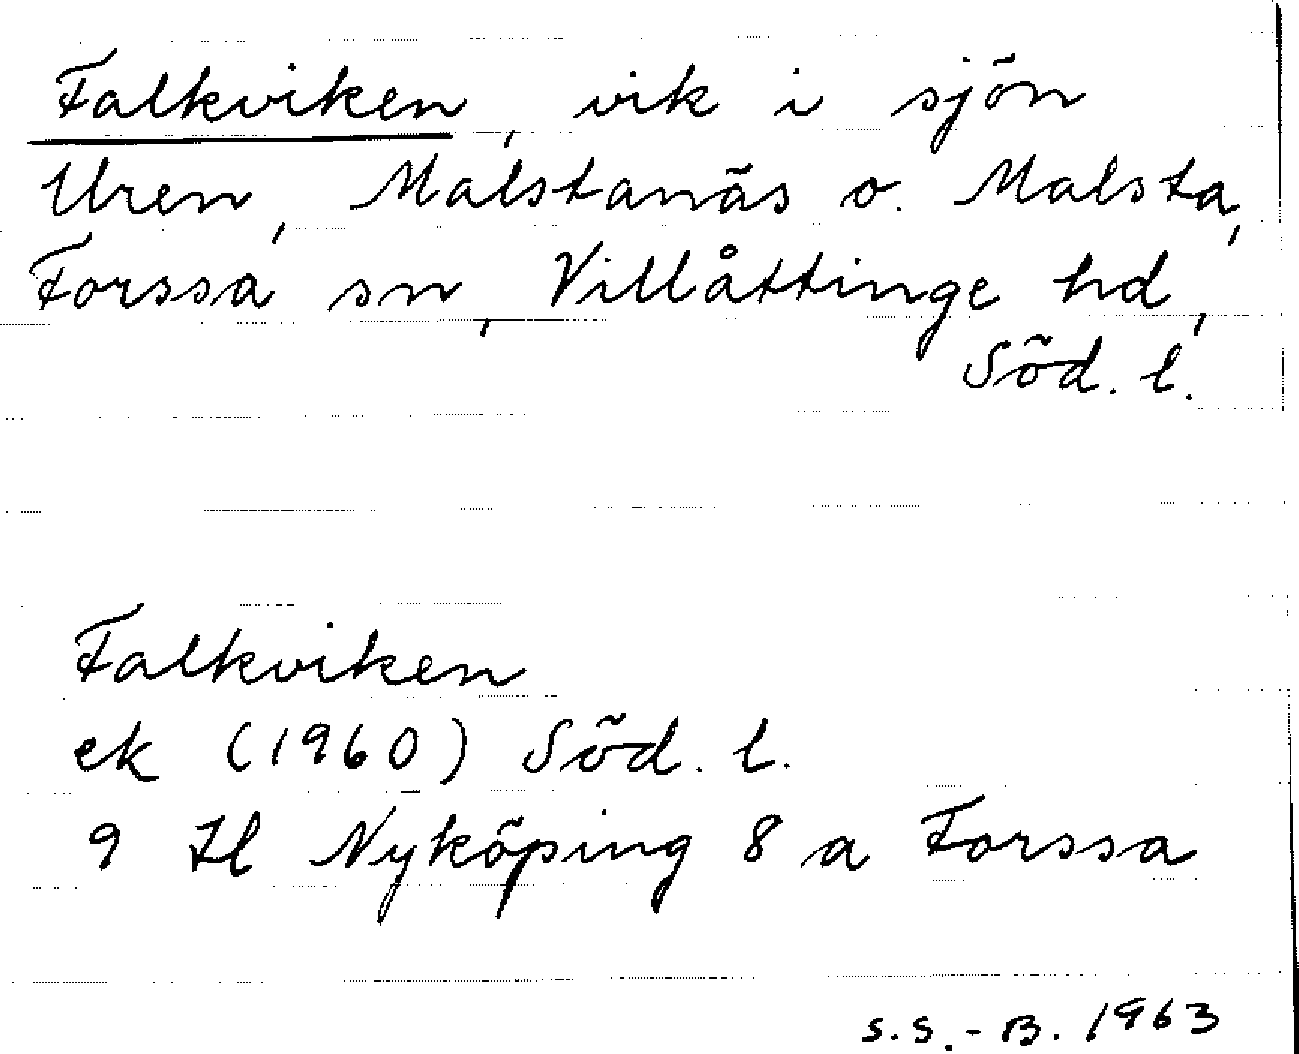 Falkviken, vik i sjön
Uren, Malstanäs o. Malsta,
Forssa sn, Villåttinge hd,
Söd. l.
Falkviken
ek (1960) Söd. l.
9 H Nyköping 8 a Forssa
S.S.-B. 1963